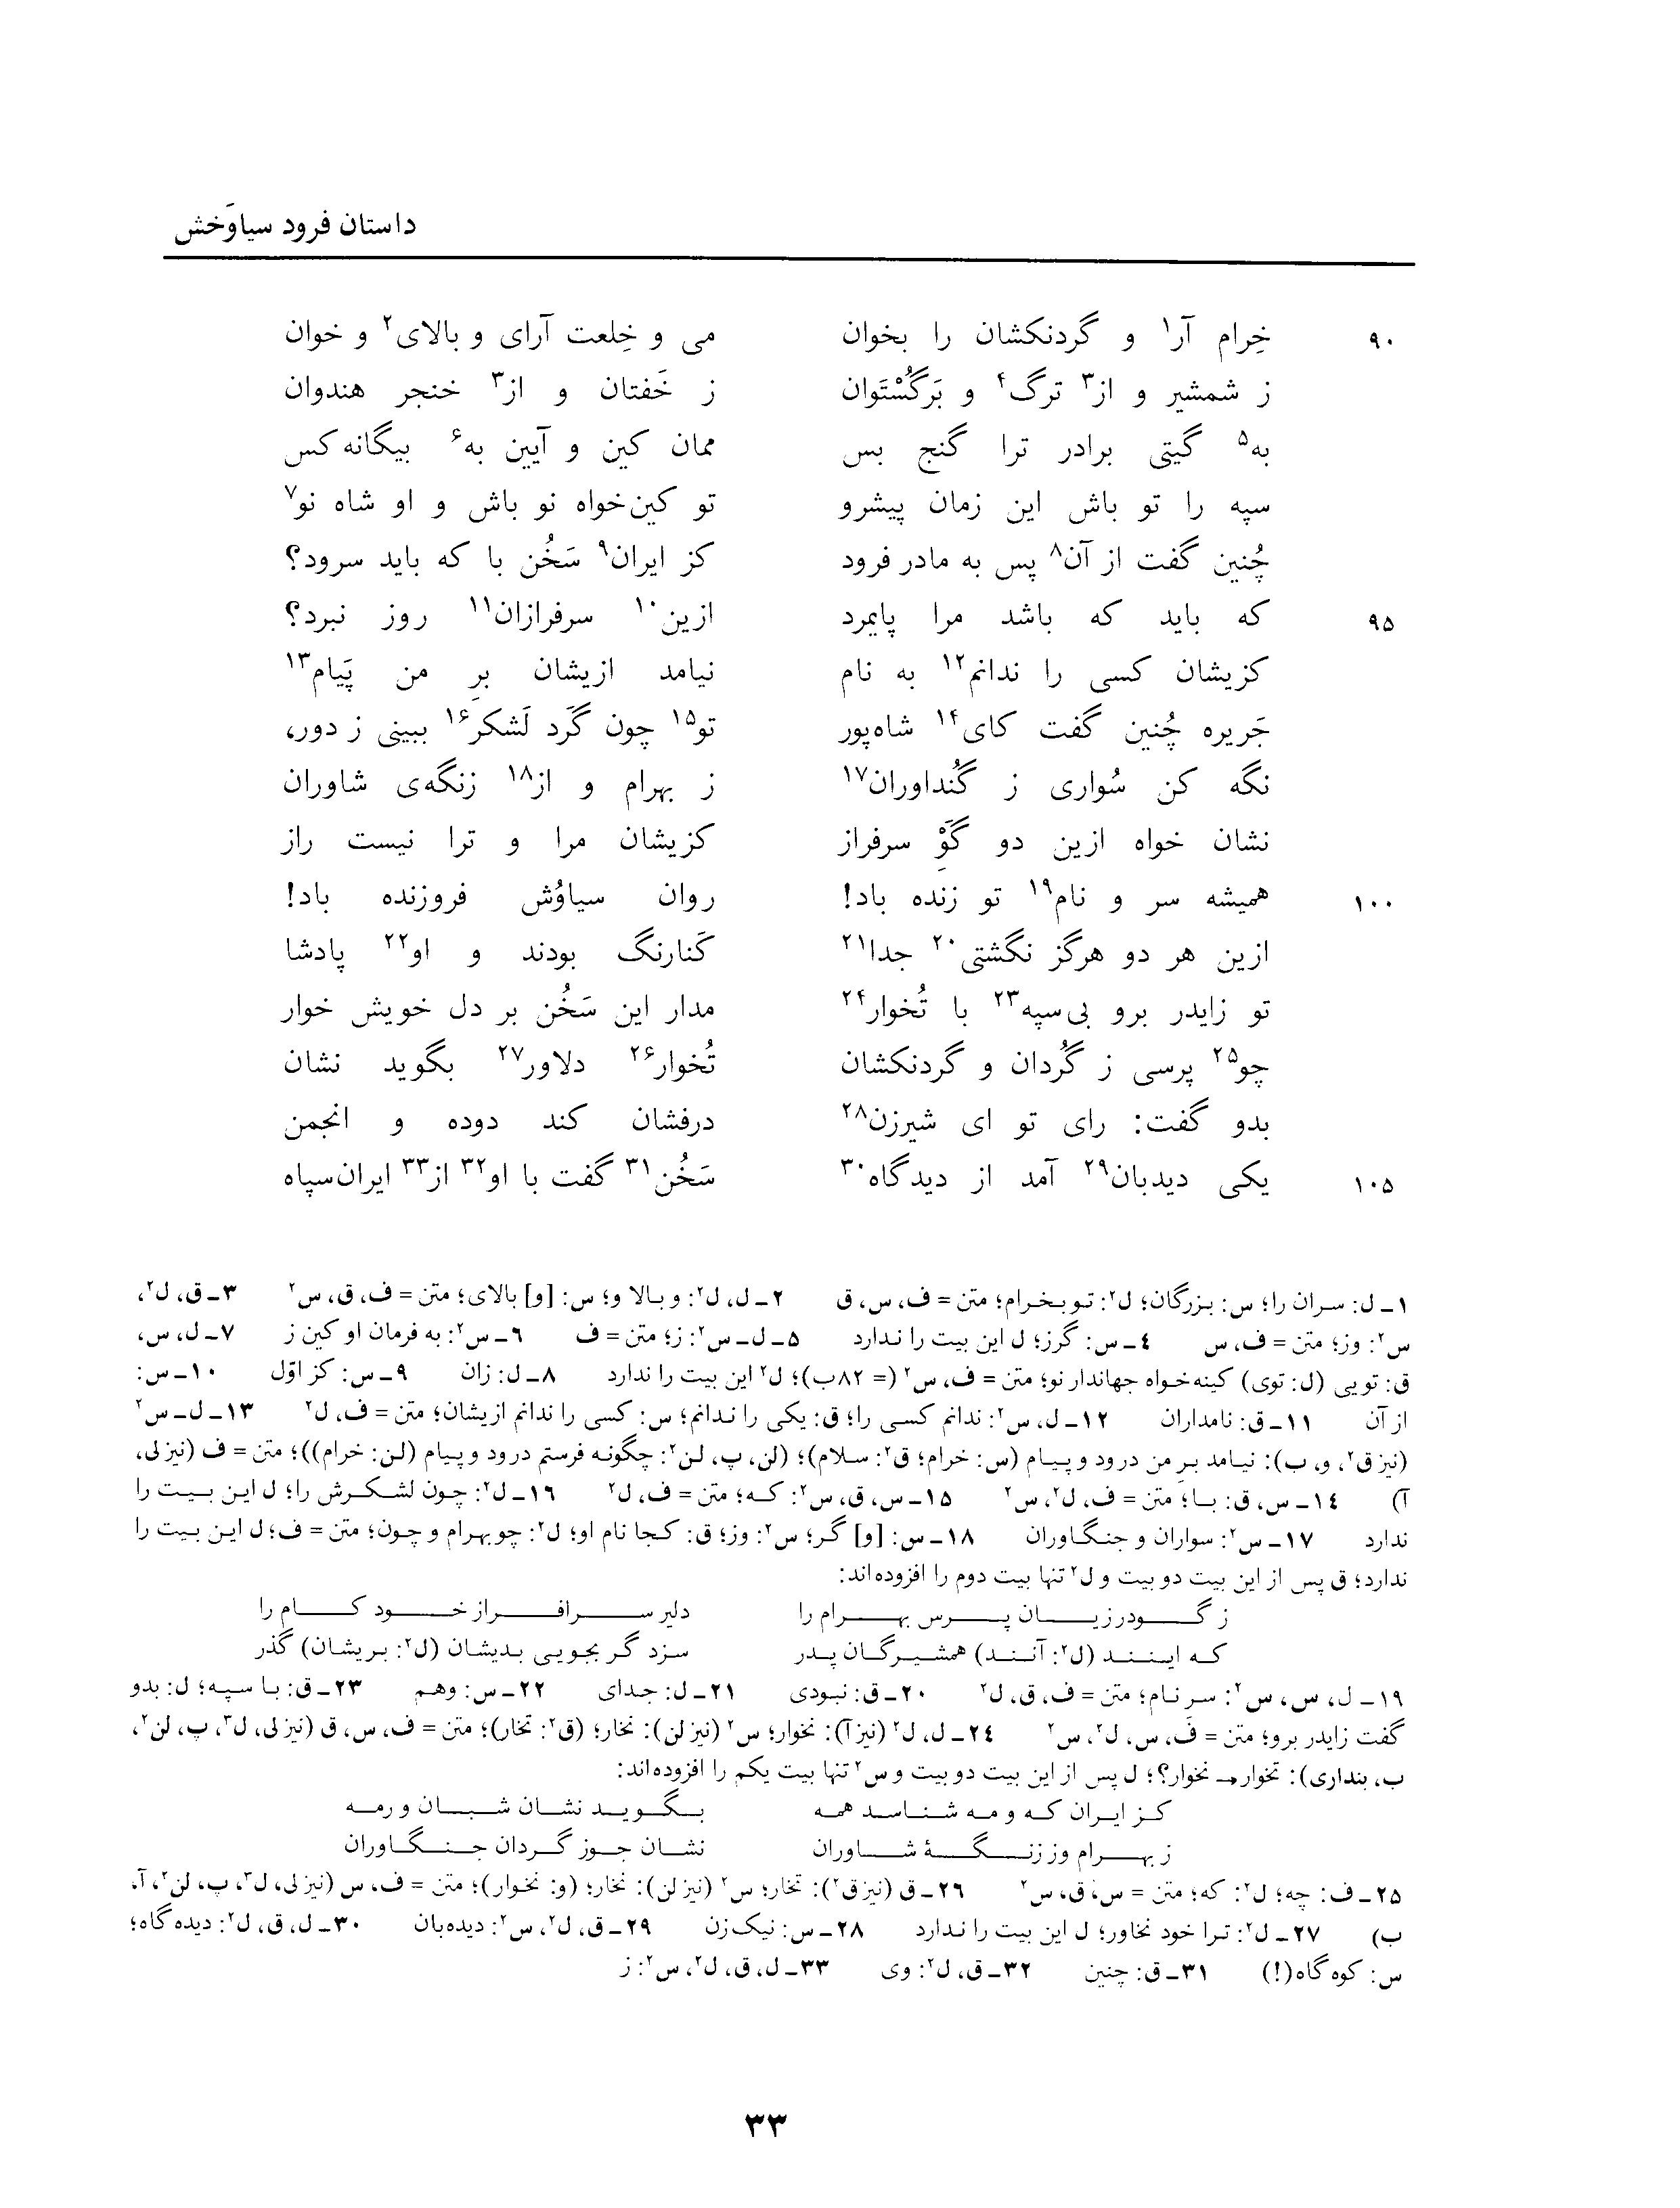 داستان فرود سیاوَخش
۹۰ خِرام آر۱ و گردنکشان را بخوان می و خِلعت آرای و بالای۲ و خوان
ز شمشیر و از۳ ترگ۴ و بَرگُسْتَوان ز خَفتان و از۳ خنجر هندوان
به۵ گیتی برادر ترا گنج بس ممان کین و آیین به۶ بیگانه کس
سپه را تو باش این زمان پیشرو تو کین‌خواه نو باش و او شاه نو۷
چُنین گفت از آن۸ پس به مادر فرود کز ایران۹ سَخُن با که باید سرود؟
۹۵ که باید که باشد مرا پایمرد ازین۱۰ سرفرازان۱۱ روز نبرد؟
کزیشان کسی را ندانم۱۲ به نام نیامد ازیشان برِ من پَیام۱۳
جَریره چُنین گفت کای۱۴ شاه‌پور تو۱۵ چون گَرد لَشکر۱۶ ببینی ز دور،
نگه کن سُواری ز گُنداوران۱۷ ز بهرام و از۱۸ زنگه‌ی شاوران
نشان خواه ازین دو گَوِْ سرفراز کزیشان مرا و ترا نیست راز
۱۰۰ همیشه سر و نام۱۹ تو زنده باد! روان سیاوُش فروزنده باد!
ازین هر دو هرگز نگشتی۲۰ جدا۲۱ کَنارنگ بودند و او۲۲ پادشا
تو زایدر برو بی‌سپه۲۳ با تُخوار۲۴ مدار این سَخُن بر دل خویش خوار
چو۲۵ پرسی ز گُردان و گردنکشان تُخوار۲۶ دلاور۲۷ بگوید نشان
بدو گفت: رای تو ای شیرزن۲۸ درفشان کند دوده و انجمن
۱۰۵ یکی دیدبان۲۹ آمد از دیدگاه۳۰ سَخُن۳۱ گفت با او۳۲ از۳۳ ایران‌سپاه
۱ـ ل: سران را؛ س: بزرگان؛ ل۲: تو بخرام؛ متن = ف، س، ق ۲ـ ل، ل۲: و بالا و؛ س: [و] بالای؛ متن = ف، ق، س۲ ۳ـ ق، ل۲،
س۲: وز؛ متن = ف، س ۴ـ س: گرز؛ ل این بیت را ندارد ۵ـ ل‌ـ س۲: ز؛ متن = ف ۶ـ س۲: به فرمان او کین ز ۷ـ ل، س،
ق: تویی (ل: توی) کینه‌خواه جهاندار نو؛ متن = ف، س۲ (= ۸۲ب)؛ ل۲ این بیت را ندارد ۸ـ ل: زان ۹ـ س: کز اوّل ۱۰ـ س:
از آن ۱۱ـ ق: نامداران ۱۲ـ ل، س۲: ندانم کسی را؛ ق: یکی را ندانم؛ س: کسی را ندانم ازیشان؛ متن = ف، ل۲ ۱۳ـ ل‌ـ س۲
(نیز ق۲، و، ب): نیامد برِ من درود و پیام (س: خرام؛ ق۲: سلام)؛ (لن، پ، لن۲: چگونه فرستم درود و پیام (لن: خرام))؛ متن = ف (نیز لی،
آ) ۱۴ـ س، ق: با؛ متن = ف، ل۲، س۲ ۱۵ـ س، ق، س۲: که؛ متن = ف، ل۲ ۱۶ـ ل۲: چون لشکرش را؛ ل این بیت را
ندارد ۱۷ـ س۲: سواران و جنگاوران ۱۸ـ س: [و] گر؛ س۲: وز؛ ق: کجا نام او؛ ل۲: چو بهرام و چون؛ متن = ف؛ ل این بیت را
ندارد؛ ق پس از این بیت دو بیت و ل۲ تنها بیت دوم را افزوده‌اند:
ز گودرزیان پرس بهرام را دلیر سرافراز خود کام را
که اینند (ل۲: آنند) همشیرگان پدر سزد گر بجویی بدیشان (ل۲: بریشان) گذر
۱۹ـ ل، س، س۲: سر نام؛ متن = ف، ق، ل۲ ۲۰ـ ق: نبودی ۲۱ـ ل: جدای ۲۲ـ س: وهم ۲۳ـ ق: با سپه؛ ل: بدو
گفت زایدر برو؛ متن = ف، س، ل۲، س۲ ۲۴ـ ل، ل۲ (نیز آ): نخوار؛ س۲ (نیز لن): نخار؛ (ق۲: تخار)؛ متن = ف، س، ق (نیز لی، ل۳، پ، لن۲،
ب، بنداری): تخوار → نخوار؟؛ ل پس از این بیت دو بیت و س۲ تنها بیت یکم را افزوده‌اند:
کز ایران که و مه شناسد همه بگوید نشان شبان و رمه
ز بهرام وز زنگهٔ شاوران نشان جوز گردان جنگاوران
۲۵ـ ف: چه؛ ل۲: که؛ متن = س، ق، س۲ ۲۶ـ ق (نیز ق۲): تخار؛ س۲ (نیز لن): نخار؛ (و: نخوار)؛ متن = ف، س (نیز لی، ل۳، پ، لن۲، آ،
ب) ۲۷ـ ل۲: ترا خود نخاور؛ ل این بیت را ندارد ۲۸ـ س: نیک‌زن ۲۹ـ ق، ل۲، س۲: دیده‌بان ۳۰ـ ل، ق، ل۲: دیده گاه؛
س: کوه گاه(!) ۳۱ـ ق: چنین ۳۲ـ ق، ل۲: وی ۳۳ـ ل، ق، ل۲، س۲: ز
۳۳